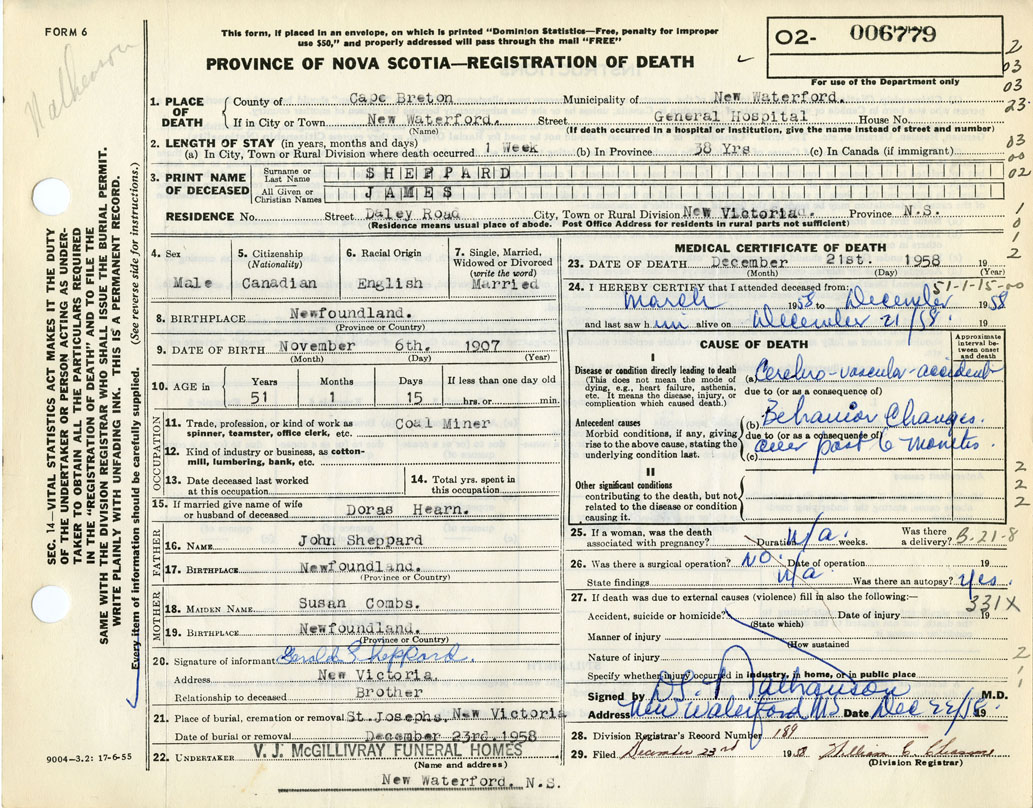 FORM 6
This form, if placed in an envelope, on which is printed "Dominion Statistics—Free, penalty for improper
use $50," and properly addressed will pass through the mail "FREE"
PROVINCE OF NOVA SCOTIA—REGISTRATION OF DEATH
O2- 006779
For use of the Department only
SEC. 14—VITAL STATISTICS ACT MAKES IT THE DUTY
OF THE UNDERTAKER OR PERSON ACTING AS UNDER-
TAKER TO OBTAIN ALL THE PARTICULARS REQUIRED
IN THE "REGISTRATION OF DEATH" AND TO FILE THE
SAME WITH THE DIVISION REGISTRAR WHO SHALL ISSUE THE BURIAL PERMIT.
WRITE PLAINLY WITH UNFADING INK. THIS IS A PERMANENT RECORD.
Every item of information should be carefully supplied. (See reverse side for instructions.)
1. PLACE OF DEATH
County of Cape Breton Municipality of New Waterford.
If in City or Town New Waterford. Street General Hospital House No.
(Name) (If death occurred in a hospital or Institution, give the name instead of street and number)
2. LENGTH OF STAY (in years, months and days)
(a) In City, Town or Rural Division where death occurred 1 Week (b) In Province 38 Yrs (c) In Canada (if immigrant)
3. PRINT NAME OF DECEASED
Surname or Last Name SHEPPARD
All Given or Christian Names JAMES
RESIDENCE No. Street Daley Road City, Town or Rural Division New Victoria. Province N.S.
(Residence means usual place of abode. Post Office Address for residents in rural parts not sufficient)
4. Sex
Male
5. Citizenship
(Nationality)
Canadian
6. Racial Origin
English
7. Single, Married,
Widowed or Divorced
(write the word)
Married
8. BIRTHPLACE Newfoundland.
(Province or Country)
9. DATE OF BIRTH November 6th. 1907
(Month) (Day) (Year)
10. AGE in
Years Months Days If less than one day old
51 1 15 hrs. or min.
OCCUPATION
11. Trade, profession, or kind of work as
spinner, teamster, office clerk, etc. Coal Miner
12. Kind of industry or business, as cotton-
mill, lumbering, bank, etc.
13. Date deceased last worked
at this occupation
14. Total yrs. spent in
this occupation
15. If married give name of wife
or husband of deceased Doras Hearn.
FATHER
16. NAME John Sheppard
17. BIRTHPLACE Newfoundland.
(Province or Country)
MOTHER
18. MAIDEN NAME Susan Combs.
19. BIRTHPLACE Newfoundland.
(Province or Country)
20. Signature of informant Gerald Sheppard.
Address New Victoria.
Relationship to deceased Brother
21. Place of burial, cremation or removal St. Josephs, New Victoria
Date of burial or removal December 23rd. 1958
22. UNDERTAKER V. J. McGILLIVRAY FUNERAL HOMES
(Name and address)
New Waterford. N.S.
9004—3.2: 17-6-55
MEDICAL CERTIFICATE OF DEATH
23. DATE OF DEATH December 21st. 1958 19
(Month) (Day) (Year)
24. I HEREBY CERTIFY that I attended deceased from: 51-1-15-00
March 1958 to December 1958
and last saw him alive on December 21/58 19
CAUSE OF DEATH
Approximate
interval be-
tween onset
and death
I
Disease or condition directly leading to death
(This does not mean the mode of
dying, e.g., heart failure, asthenia,
etc. It means the disease, injury, or
complication which caused death.)
(a) Cerebro-vascular-accident
due to (or as a consequence of)
Antecedent causes
Morbid conditions, if any, giving
rise to the above cause, stating the
underlying condition last.
(b) Behavior Changes.
due to (or as a consequence of)
over past 6 months.
(c)
II
Other significant conditions
contributing to the death, but not
related to the disease or condition
causing it.
25. If a woman, was the death
associated with pregnancy? Duration N/a. weeks. Was there
a delivery? B-21-8
26. Was there a surgical operation? NO. Date of operation 19
State findings N/a Was there an autopsy? yes.
27. If death was due to external causes (violence) fill in also the following:—
331X
Accident, suicide or homicide? Date of injury 19
(State which)
Manner of injury
(How sustained
Nature of injury
Specify whether injury occurred in industry, in home, or in public place
Signed by Nathanson M.D.
Address New Waterford NS Date Dec 22/58 19
28. Division Registrar's Record Number 189
29. Filed December 23rd 1958
(Division Registrar)
2
03
03
23.
03
00
02
1
0
1
2
2
2
2
2
1
1